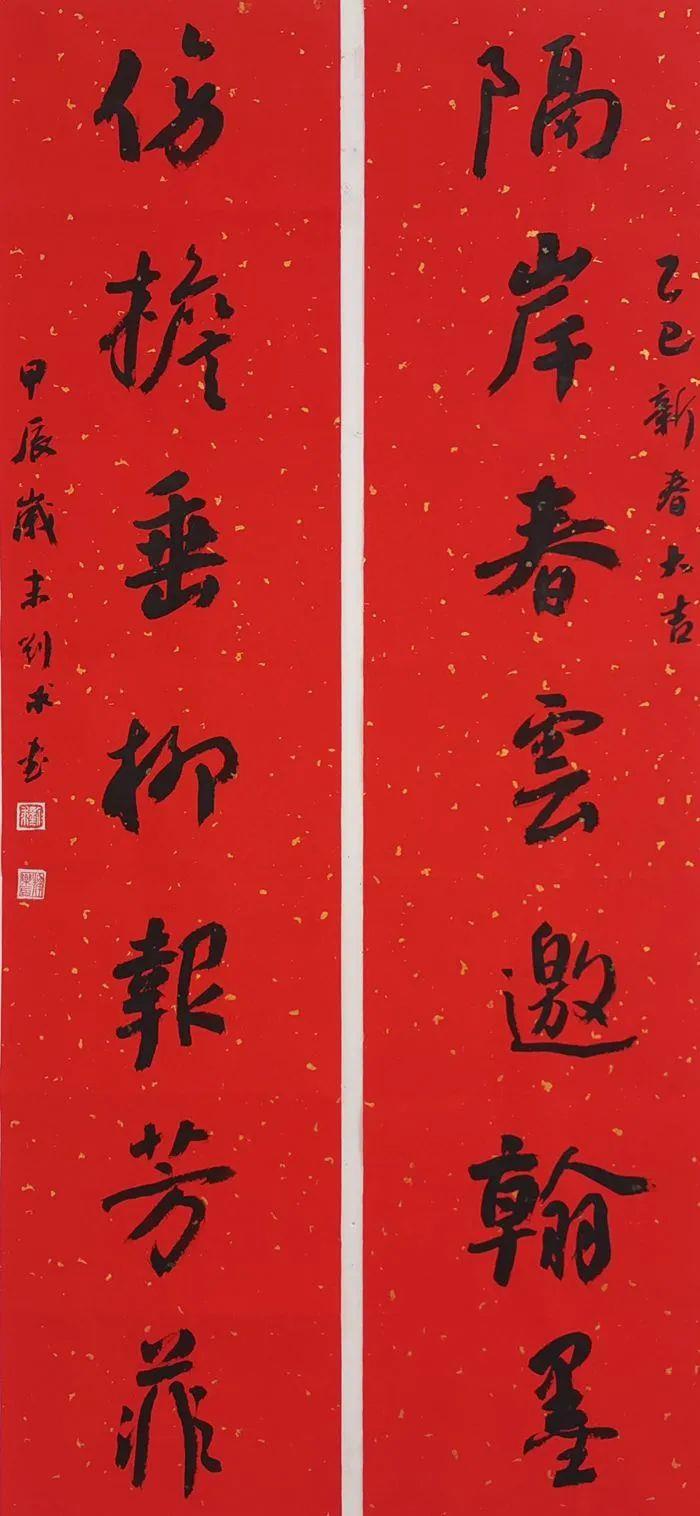 乙巳新春大吉
隔岸春雲邀翰墨
傍檐垂柳報芳菲
甲辰歲末劉求書